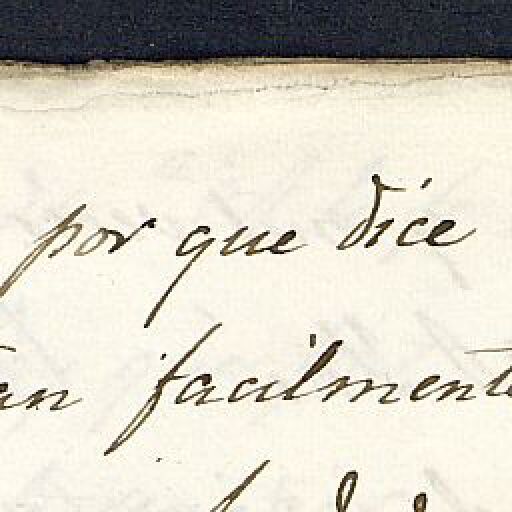 por que dice
tan facilmente